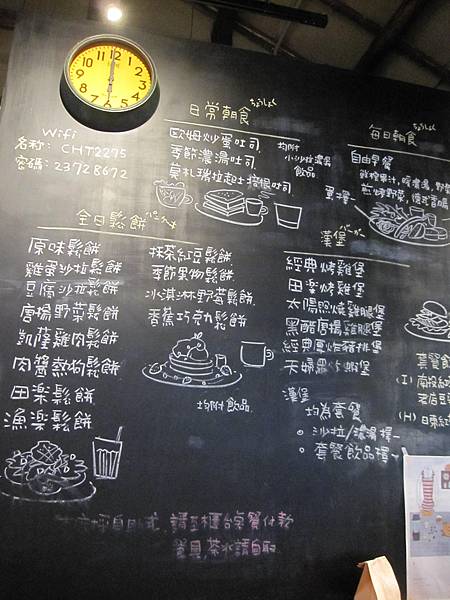 Wifi
名称: CHT2275
密碼: 23728672
日常朝食 ちょうしょく
歐姆炒蛋吐司
季節濃湯吐司
莫札瑞拉起士培根吐司
均附
小沙拉濃湯
飲品
每日朝食 ちょうしょく
自由早餐
全日鬆餅
原味鬆餅
雞蛋沙拉鬆餅
豆腐沙拉鬆餅
野菜鬆餅
凱薩雞肉鬆餅
肉醬熱狗鬆餅
田楽鬆餅
漁楽鬆餅
抹茶紅豆鬆餅
季節果物鬆餅
冰淇淋野莓鬆餅
香蕉巧克力鬆餅
均附飲品
漢堡 バーガー
經典烤雞堡
田楽烤雞堡
太陽照燒雞腿堡
黑醋雞腿堡
經典厚炸豬排堡
天婦羅炸蝦堡
漢堡
均為套餐
沙拉/濃湯擇一
套餐飲品擇一
套餐飲
(I)
(H) 日東紅
自助式, 請至櫃台点餐付款
餐具, 茶水請自取